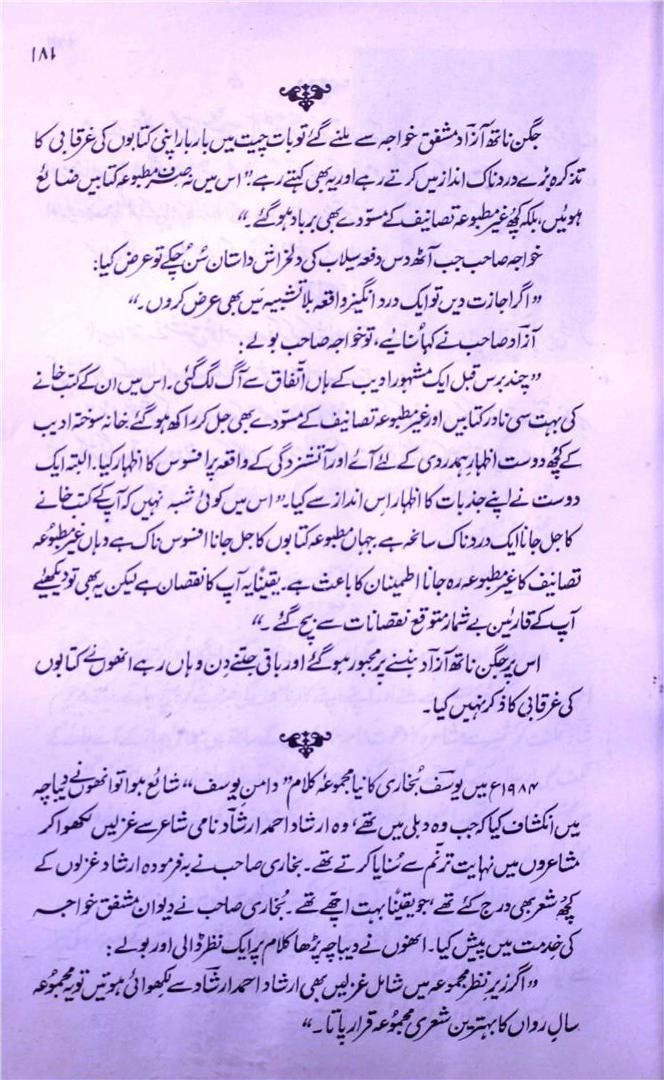 ۱۸۱
جگن ناتھ آزاد مشفق خواجہ سے ملنے گئے تو بات چیت میں بار بار اپنی کتابوں کی غرقابی کا
تذکرہ بڑے دردناک انداز میں کرتے رہے اور یہ بھی کہتے رہے۔" اس میں نہ صرف مطبوعہ کتابیں ضائع
ہوئیں، بلکہ کچھ غیر مطبوعہ تصانیف کے مسوّدے بھی برباد ہو گئے۔"
خواجہ صاحب جب آٹھ دس دفعہ سیلاب کی دلخراش داستان سُن چکے تو عرض کیا:
"اگر اجازت دیں تو ایک درد انگیز واقعہ بلا تشبیہ مَیں بھی عرض کروں۔"
آزاد صاحب نے کہا سُنایے، تو خواجہ صاحب بولے:
"چند برس قبل ایک مشہور ادیب کے ہاں اتفاق سے آگ لگ گئی۔ اس میں ان کے کتب خانے
کی بہت سی نادر کتابیں اور غیر مطبوعہ تصانیف کے مسوّدے بھی جل کر راکھ ہو گئے خانہ سوختہ ادیب
کے کچھ دوست اظہارِ ہمدردی کے لئے آئے اور آتشزدگی کے واقعہ پر افسوس کا اظہار کیا۔ البتہ ایک
دوست نے اپنے جذبات کا اظہار اس انداز سے کیا۔" اس میں کوئی شبہ نہیں کہ آپ کے کتب خانے
کا جل جانا ایک دردناک سانحہ ہے۔ جہاں مطبوعہ کتابوں کا جل جانا افسوس ناک ہے وہاں غیر مطبوعہ
تصانیف کا غیر مطبوعہ رہ جانا اطمینان کا باعث ہے۔ یقیناً یہ آپ کا نقصان ہے لیکن یہ بھی تو دیکھئے
آپ کے قارئین بے شمار متوقع نقصانات سے بچ گئے۔"
اس پر جگن ناتھ آزاد ہنسنے پر مجبور ہو گئے اور باقی جتنے دن وہاں رہے انھوں نے کتابوں
کی غرقابی کا ذکر نہیں کیا۔
۱۹۸۴ء میں یوسف بُخاری کا نیا مجموعۂ کلام "دامنِ یوسف" شائع ہوا تو انھوں نے دیباچہ
میں انکشاف کیا کہ جب وہ دہلی میں تھے، وہ ارشاد احمد ارشاد نامی شاعر سے غزلیں لکھوا کر
مشاعروں میں نہایت ترنّم سے سُنایا کرتے تھے۔ بخاری صاحب نے بہ فرمودہ ارشاد غزلوں کے
کچھ شعر بھی درج کئے تھے، جو یقیناً بہت اچھے تھے۔ بُخاری صاحب نے دیوان مشفق خواجہ
کی خدمت میں پیش کیا۔ انھوں نے دیباچہ پڑھا کلام پر ایک نظر ڈالی اور بولے:
"اگر زیرِ نظر مجموعہ میں شامل غزلیں بھی ارشاد احمد ارشاد سے لکھوائی ہوتیں تو یہ مجموعہ
سالِ رواں کا بہترین شعری مجموعہ قرار پاتا۔"